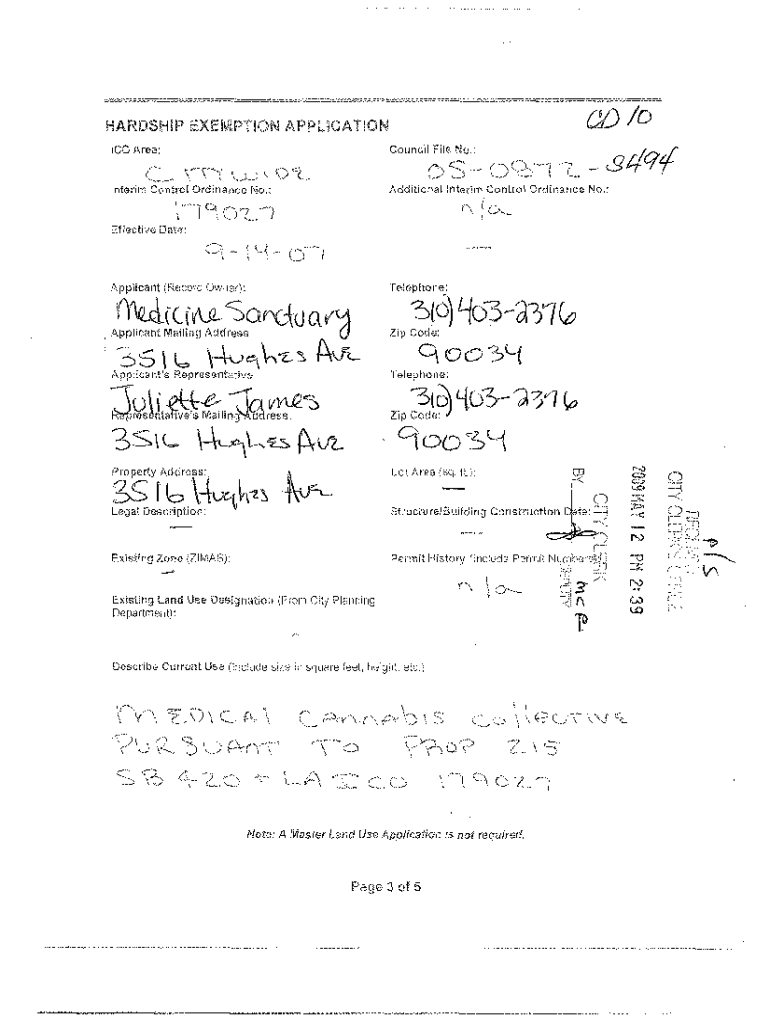 CD 10
HARDSHIP EXEMPTION APPLICATION
ICO Area: Council File No.:
CITYWIDE 05-0872-S494
Interim Control Ordinance No.: Additional Interim Control Ordinance No.:
179027 n/a
Effective Date:
9-14-07
Applicant (Record Owner): Telephone:
Medicine Sanctuary 310)403-2376
Applicant Mailing Address Zip Code:
3516 Hughes Ave 90034
Applicant's Representative Telephone:
Juliette James 310)403-2376
Representative's Mailing Address: Zip Code:
3516 Hughes Ave 90034
Property Address: Lot Area (sq. ft.):
3516 Hughes Ave —
Legal Description: Structure/Building Construction Date:
— —
Existing Zone (ZIMAS): Permit History (Include Permit Numbers)
— n/a
Existing Land Use Designation (From City Planning
Department):
CITY CLERK'S OFFICE
2009 MAY 12 PM 2:39
CITY CLERK
BY
DEPUTY
Describe Current Use (Include size in square feet, height, etc.)
MEDICAl CannAbIS CollECTIVE
PURSUANT TO PROP 215
SB 420 + LA ICO 179027
Note: A Master Land Use Application is not required.
Page 3 of 5